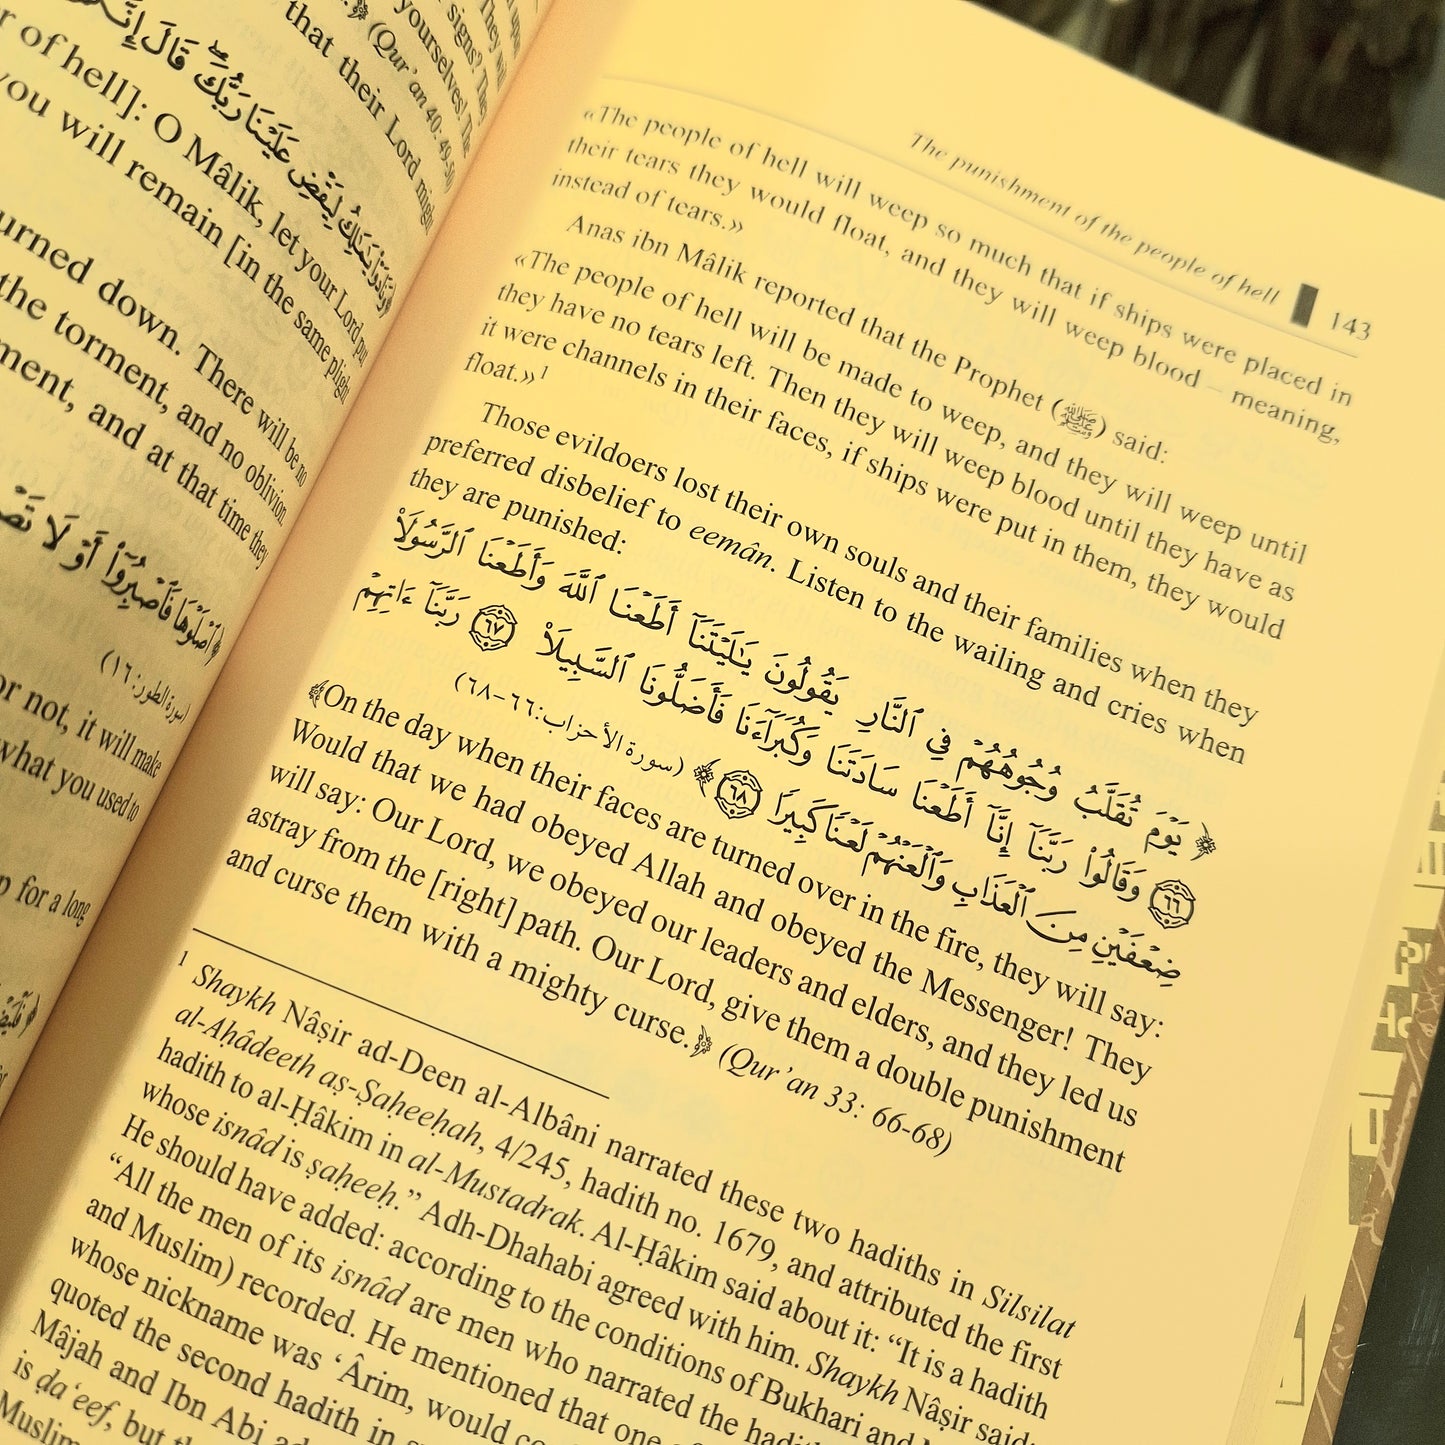 upon
They will
signs? They
yourselves! The
(Qur’an 40: 49-50)
that their Lord might
﴿وَنَادَوْا۟ يَـٰمَـٰلِكُ لِيَقْضِ عَلَيْنَا رَبُّكَ ۖ قَالَ
r of hell]: O Mâlik, let your Lord put
you will remain [in the same plight
urned down. There will be no
the torment, and no oblivion.
ment, and at that time they
﴿ٱصْلَوْهَا فَٱصْبِرُوٓا۟ أَوْ لَا
(سورة الطور: ١٦)
or not, it will make
what you used to
p for a long
The punishment of the people of hell 143
«The people of hell will weep so much that if ships were placed in
their tears they would float, and they will weep blood – meaning,
instead of tears.»
Anas ibn Mâlik reported that the Prophet (ﷺ) said:
«The people of hell will be made to weep, and they will weep until
they have no tears left. Then they will weep blood until they have as
it were channels in their faces, if ships were put in them, they would
float.»1
Those evildoers lost their own souls and their families when they
preferred disbelief to eemân. Listen to the wailing and cries when
they are punished:
﴿ يَوْمَ تُقَلَّبُ وُجُوهُهُمْ فِي ٱلنَّارِ يَقُولُونَ يَـٰلَيْتَنَآ أَطَعْنَا ٱللَّهَ وَأَطَعْنَا ٱلرَّسُولَا۠
٦٦ وَقَالُوا۟ رَبَّنَآ إِنَّآ أَطَعْنَا سَادَتَنَا وَكُبَرَآءَنَا فَأَضَلُّونَا ٱلسَّبِيلَا۠ ٦٧ رَبَّنَآ ءَاتِهِمْ
ضِعْفَيْنِ مِنَ ٱلْعَذَابِ وَٱلْعَنْهُمْ لَعْنًا كَبِيرًا ٦٨ ﴾ (سورة الأحزاب: ٦٦-٦٨)
﴿On the day when their faces are turned over in the fire, they will say:
Would that we had obeyed Allah and obeyed the Messenger! They
will say: Our Lord, we obeyed our leaders and elders, and they led us
astray from the [right] path. Our Lord, give them a double punishment
and curse them with a mighty curse.﴾ (Qur’an 33: 66-68)
1 Shaykh Nâṣir ad-Deen al-Albâni narrated these two hadiths in Silsilat
al-Aḥâdeeth aṣ-Ṣaheeḥah, 4/245, hadith no. 1679, and attributed the first
hadith to al-Ḥâkim in al-Mustadrak. Al-Ḥâkim said about it: “It is a hadith
whose isnâd is ṣaḥeeḥ.” Adh-Dhahabi agreed with him. Shaykh Nâṣir said:
He should have added: according to the conditions of Bukhari and
“All the men of its isnâd are men who narrated the
and Muslim) recorded. He mentioned that one
whose nickname was ‘Ârim, would
quoted the second hadith in
Mâjah and Ibn Abi
is ḍa‘eef, but
Muslim